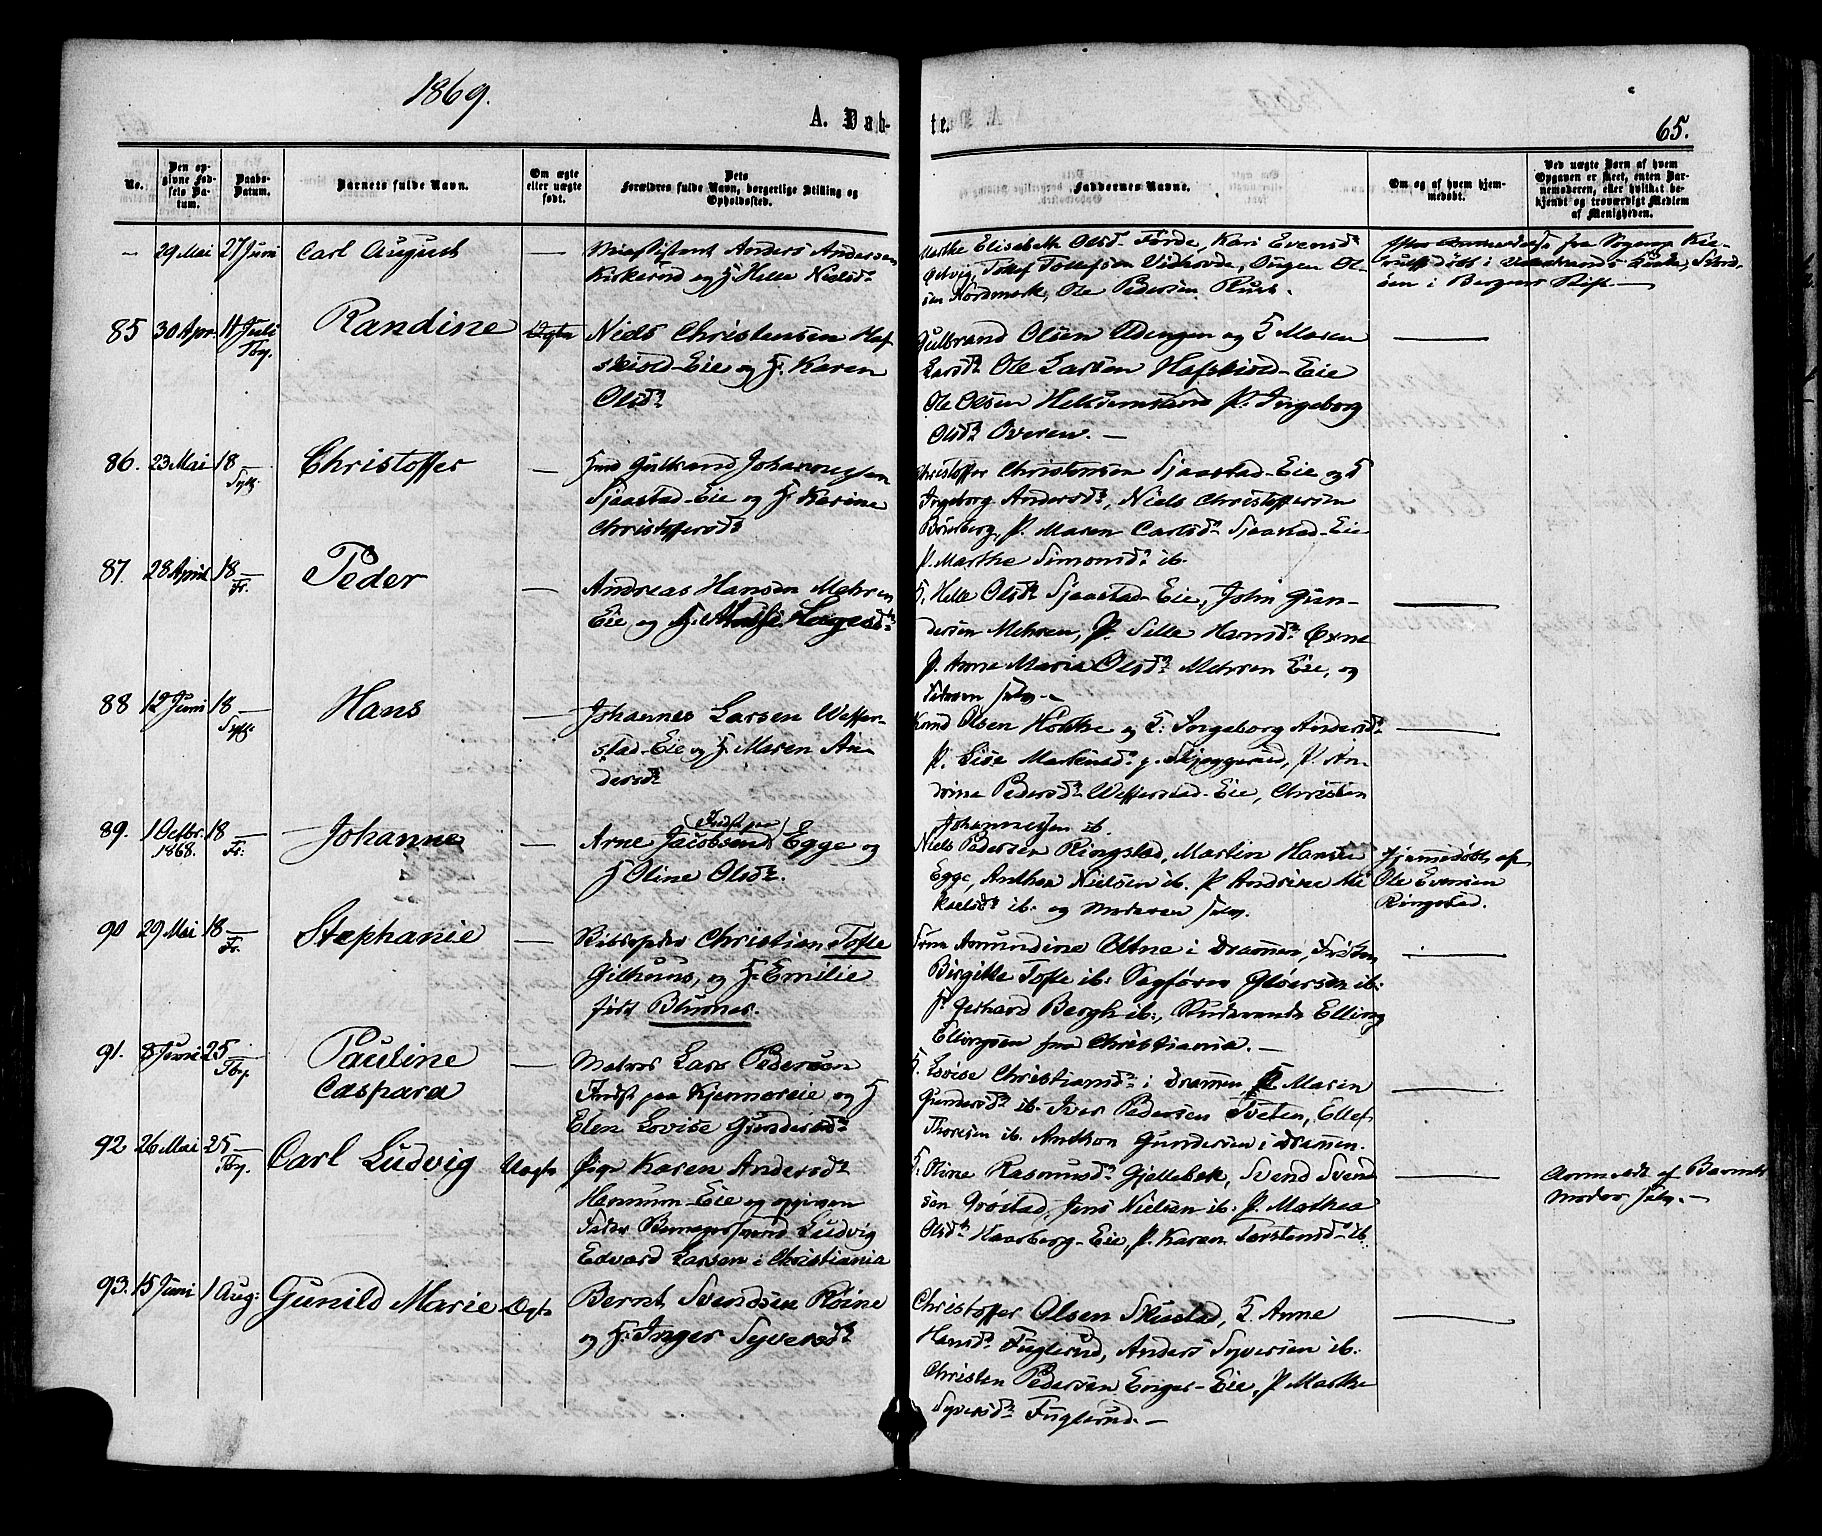 1869.
A. Døb-
te.
65.
No.
Den op-
givne Fød-
sels Da-
tum.
Daabs-
Datum.
Barnets fulde Navn.
Om ægte
eller uægte
født.
Dets
Forældres fulde Navn, borgerlige Stilling og
Opholdssted.
Faddernes Navne.
Om og af hvem hjem-
medøbt.
Ved uægte Barn af hvem
Opgaven er skeet, enten Bar-
nemoderen, eller hvilket be-
kjendt og troværdigt Medlem
af Menigheden.
— 29 Mai 27 Juni Carl August — Anders Andersen
Kirkerud og H Helle Nielsdr
Marthe Elisabeth Olsdr Førde, Kari Evensdr
Tollef Tollefsen
sen Nordmark, Ole Pedersen
fra Sogepr
i Bergens Stift. —
85 30 Apr. 11 Juli Randine Ægte Niels Christensen Haf-
Tby.
skiold-Eie og H. Karen
Olsdr
Gulbrand Olsen Ødengen og H Maren
Larsdr Ole Larsen Hafskiold-Eie
Ole Olsen P. Ingeborg
Olsdr Overen. —
86. 23 Mai 18 Christoffer — Gulbrand Johannessen
Syll.
Sjaastad-Eie og H Karine
Christoffersdr
Christoffer Christensen Sjaastad-Eie og H
Ingeborg Andersdr, Niels Christoffersen
P. Maren Carlsdr Sjaastad-Eie
P. Marthe Simonsdr ib.
87. 28 April 18 Peder Andreas Hansen Mehren
Fr.
Eie, og H.
H. Helle Olsdr Sjaastad-Eie, John Gun-
dersen Mehren, P. Sille Hansdr Øxne
P. Anne Maria Olsdr Mehren Eie, og
Faderen selv. —
88 12 Juni 18 Hans — Johannes Larsen Weffer-
Syll.
stad-Eie og H. Maren An-
dersdr
Knud Olsen og H: Ingeborg Andersdr
P. Lise P. An-
drine Pedersdr Wefferstad-Eie, Christen
Johannessen ib.
89. 1 Octbr. 18 Johanne — Arne Jacobsen (Indst paa) Egge og
1868. Fr:
H Oline Olsdr.
Niels Pedersen Ringstad, Martin Hansen
Egge, Anthea Nielsen ib. P Andrine Mi-
kaelsdr ib. og Moderen selv.
Hjemmedøbt af
Ole Evensen
Ringstad.
90 29 Mai 18 Stephanie — Christian Tofte
Fr.
Gilhuus, og H. Emilie
født Blumes.
Amundine Oltne i Drammen, Frøken
Birgitte Tofte ib: Sagfører Gløersen ib:
Gerhard Bergh ib:, Studerende Elling
Ellingsen fra Christiania. —
91. 8 Juni 25 Pauline — Matros Lars Pedersen
Tby.
Caspara Indst paa Kjennereie og H
Elen Lovise Gundersdr
H. Lovise Christiansdr i Drammen H Maren
Gundersdr ib. Iver Pedersen Tveten, Ellef
Thoresen ib. Anthon Gundersen i Drammen.
92 26 Mai 25 Carl Ludvig Uægte Pige Karen Andersdr
Tby.
Hennum-Eie og opgiven
Fader Ludvig
Edvard Larsen i Christiania
H. Oline Rasmusdr Gjellebek, Svend Svend-
sen Grøstad, Jens Nielsen ib. P. Mathea
Olsdr Haarberg-Eie, P. Karen Torstensdr ib.
Anmeldt af Barnets
Moder selv. —
93. 15 Juni 1 Aug: Gunild Marie Ægte Bernt Svendsen Røine
og H: Inger Syversdr
Christoffer Olsen Skustad, H. Anne
Hansdr Fuglerud, Anders Syversen ib.
Christen Pedersen Enger-Eie, P. Marthe
Syversdr Fuglerud. —